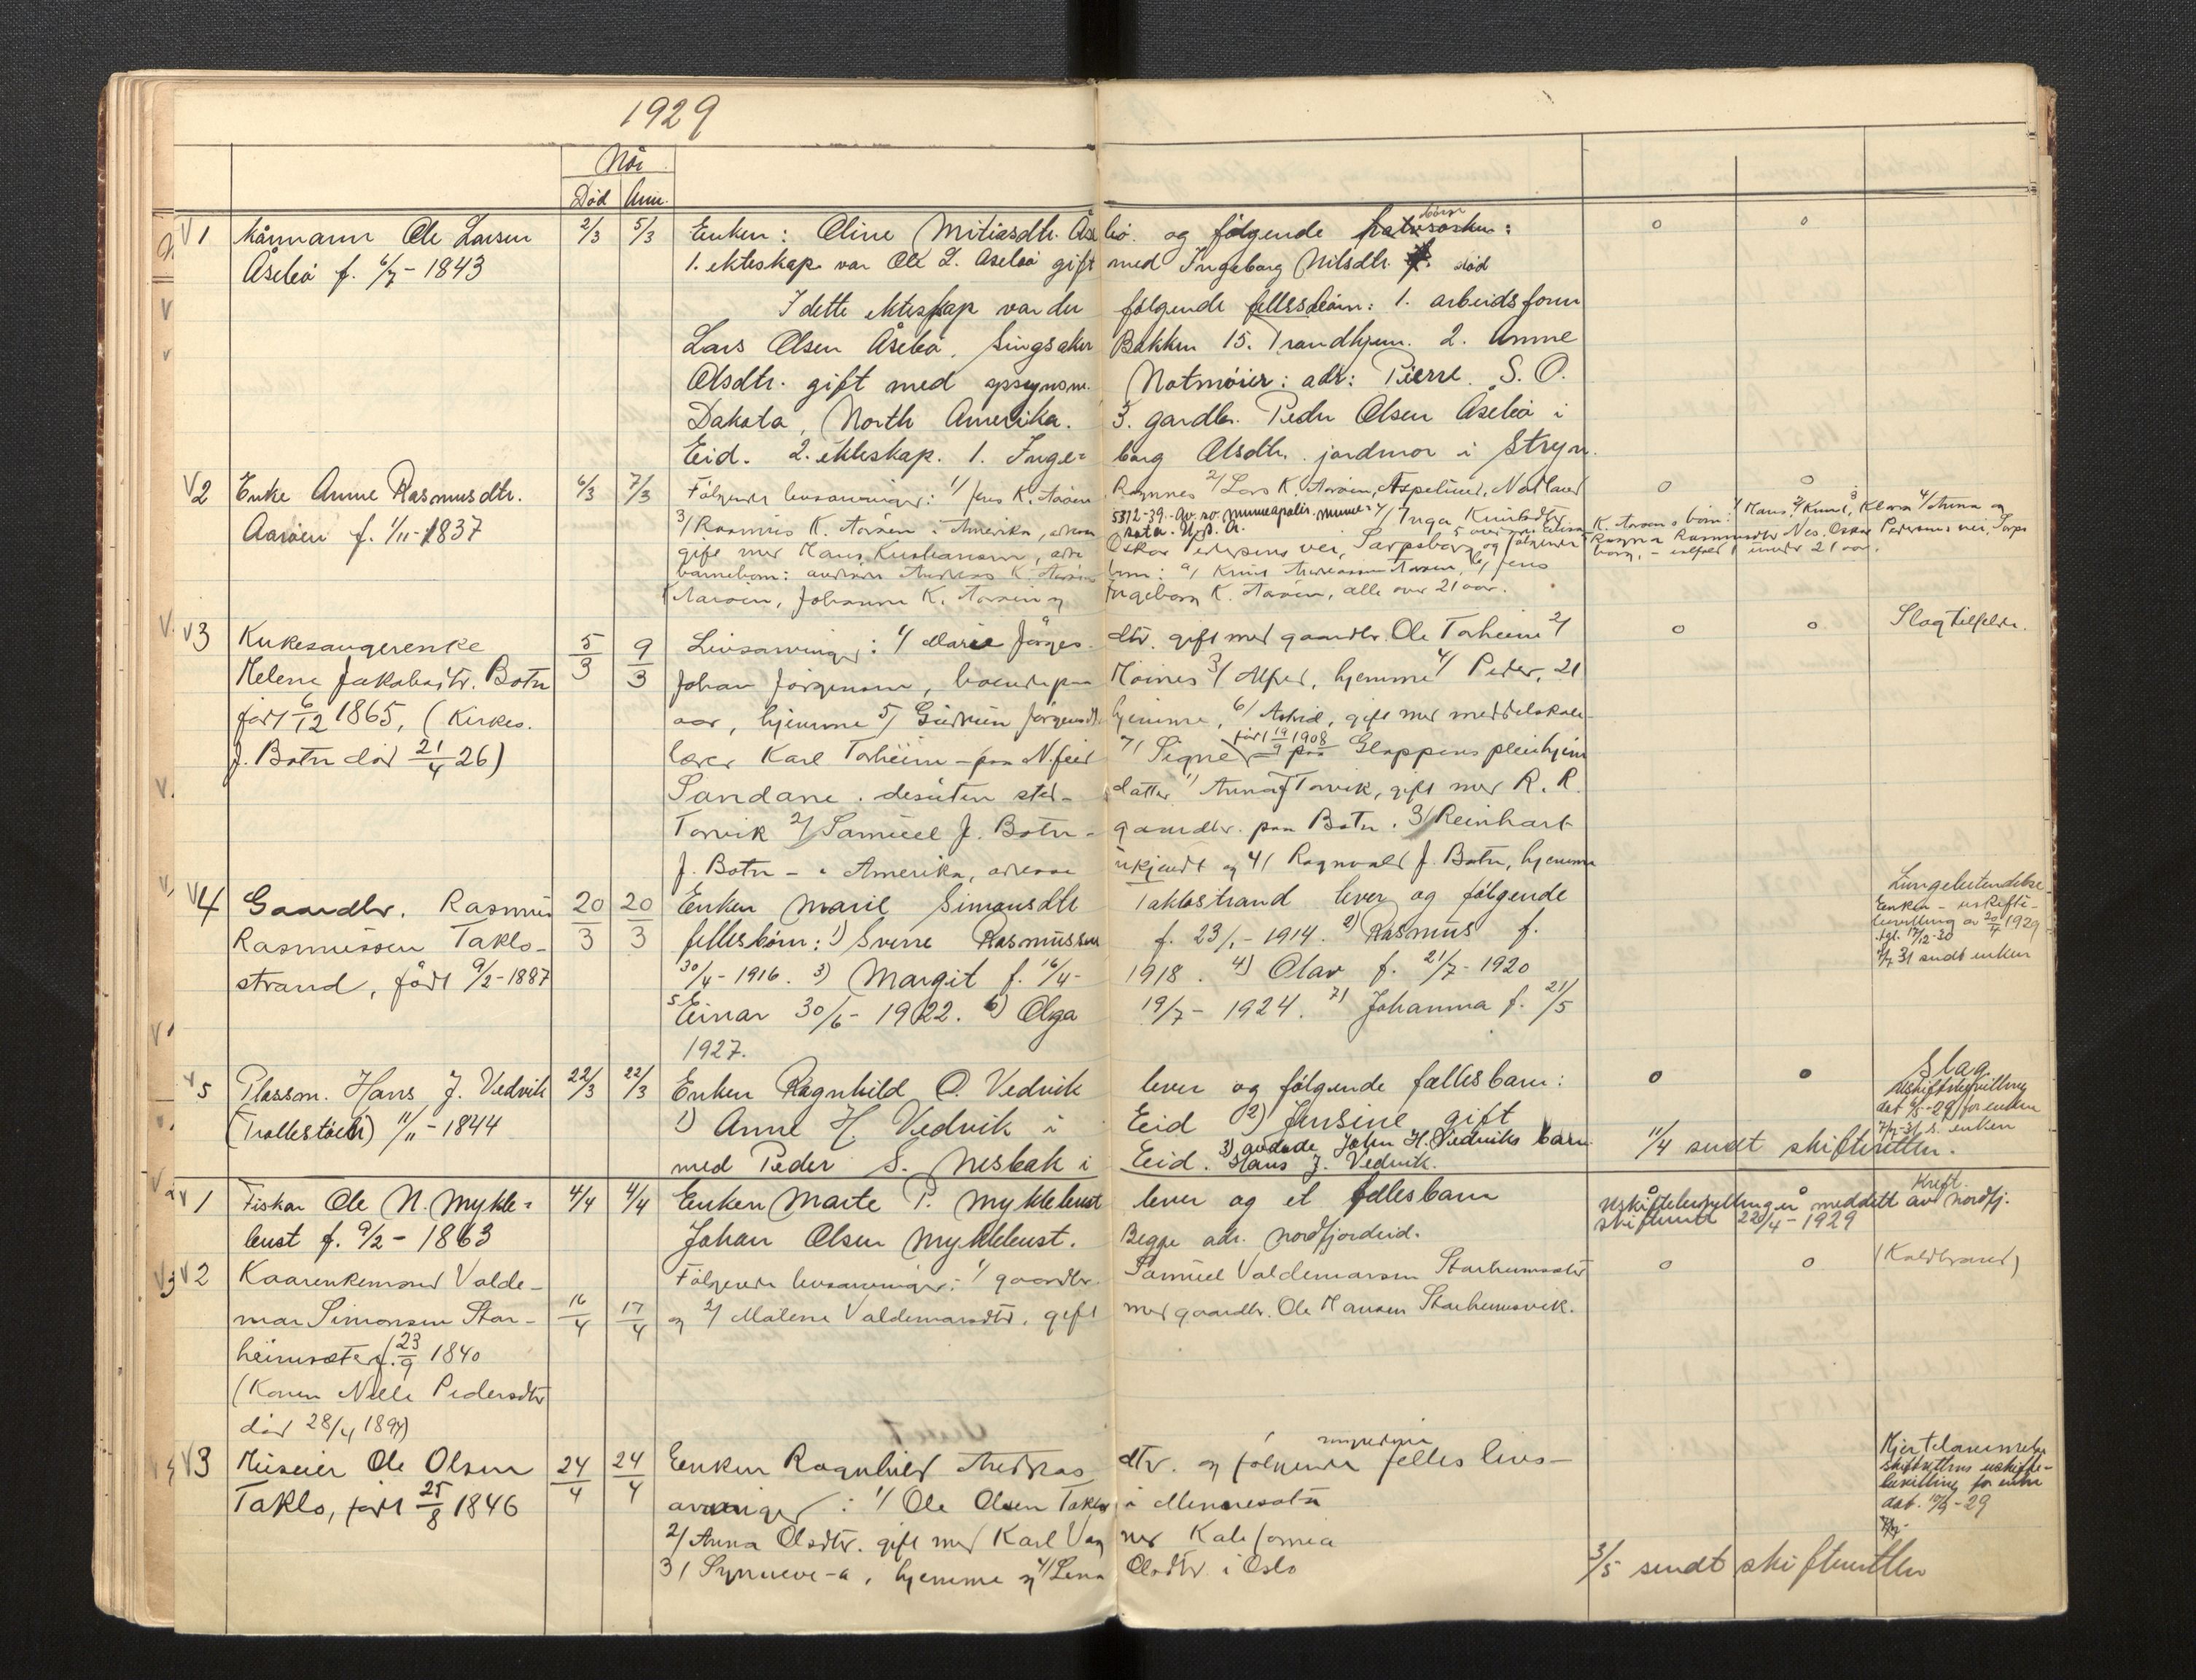 1929
Når
Død Anm.
V1 Kårmann Ole Larsen 2/3 5/3 Enken: Oline Mitiasdtr. Åsebø. og følgende børn: o o
Åsebø f. 6/7 - 1843 1. ekteskap var Ole L. Åsebø gift med Ingeborg Nilsdtr. død
I dette ekteskap var der følgende fellesbørn: 1. arbeidsform
Lars Olsen Åsebø. Singsaker Bakken 15. Trondhjem. 2. Anne
Olsdtr. gift med opsynsm. Notmøier: adr: Pierre. S. O.
Dakota, North Amerika. 3. gardbr. Peder Olsen Åsebø i
Eid. 2. ekteskap. 1. Ingeborg Olsdtr. jordmor i Stryn.
V2 Enke Anne Rasmusdtr. 6/3 7/3 Følgende livsarvinger: 1/ Jens K. Aarøen 2/ Lars K. Aarøen, Aspelund, Nordland o o
Aarøen f. 1/11 - 1837 3/ Rasmus K. Aarøen i Amerika, adresse 5312-39. Av. so Minneapolis. Minnesota. U.S.A. 4/ Inga Knutsdtr.
gift med Hans Kristiansen, adr. Oskar Pedersens vei, Sarpsborg og følgende
barnebørn: avdøde Andreas K. Aarøens børn: a/ Knut Andreassen Aarøen, b/ Jens
K. Aarøens børn: 1/ Hans, 2/ Knut, 3/ Klara 4/ Anna og
Ragna Rasmusdtr Nes. Oskar Pedersens vei, Sarpsborg, - under 21 aar.
Aarøen, Johanne K. Aarøen og Ingeborg K. Aarøen, alle over 21 aar.
V3 Kirkesangerenke 5/3 9/3 Livsarvinger: 1/ Marie Jørgensdtr. gift med gaardbr. Ole Torheim 2/ o o Slagtilfelde.
Helene Jakobsdtr. Botn Johan Jørgensen, boende paa Moines 3/ Alfred, hjemme 4/ Peder, 21
født 6/12 1865, (Kirkes. aar, hjemme 5/ Gudrun Jørgensdtr. hjemme, 6/ Astrid, gift med meddelskole-
J. Botn død 21/4 26) lærer Karl Torheim - paa N.feid 7/ Signe født 19/9 1908 - paa Gloppens pleiehjem
Sandane. desuten sted- datter 1/ Anna J Torvik, gift med R. R.
Torvik 2/ Samuel J. Botn - gaardbr. paa Botn. 3/ Reinhart
J. Botn - i Amerika, adresse ukjendt og 4/ Ragnvald J. Botn, hjemme
V4 Gaardbr. Rasmus 20/3 20/3 Enken Marie Simonsdtr Taklostrand lever og følgende Lungebetendelse
Rasmussen Taklo- fellesbørn: 1) Sverre Rasmussen f. 23/1 - 1914. 2) Rasmus f. Enken - uskifte-
strand, født 9/2 - 1887 30/4 - 1916. 3) Margit f. 16/4 - 1918. 4) Olav f. 21/7 - 1920 bevilling av 20/4 1929
5 Einar 30/6 - 1922. 6) Olga 19/7 - 1924. 7) Johanna f. 21/5 tgl. 17/12-30
1927. 31 sendt enken
V5 Plassm. Hans J. Vedvik 22/3 22/3 Enken Ragnhild O. Vedvik lever og følgende fællesbarn: o o Slag
(Trollestøen) 11/11 - 1844 1) Anne H. Vedvik i Eid 2) Jensine gift Uskiftebevilling
dat 6/5-29 for enken
med Peder S. Nesbak i Eid. 3) avdøde John H. Vedviks barn Hans J. Vedvik. 11/4 sendt skifteretten.
V1 Fisker Ole N. Mykle- 4/4 4/4 Enken Marte P. Myklebust lever og et fellesbarn Kreft.
bust f. 9/2 - 1863 Johan Olsen Myklebust. Begge adr. Nordfjordeid. Uskiftebevilling er meddelt av Nordfj.
skifterett 22/4 - 1929
V2 Kaarenkemand Valde- 16/4 17/4 Følgende livsarvinger: 1/ gaardbr. Samuel Valdemarsen Starheimsæter o o (Koldbrand)
mar Simonsen Star- og 2/ Malene Valdemarsdtr. gift med gaardbr. Ole Hansen Starheimsvik.
heimsæter f. 23/9 1840
(Konen Nille Pedersdtr
død 28/4 1894)
V3 Huseier Ole Olsen 24/4 24/4 Enken Ragnhild Andreasdtr. og følgende myndige felles livs- Hjertelammelse
Taklo, født 25/8 1846 arvinger: 1/ Ole Olsen Taklo i Minnesota skifterettens uskifte-
bevilling for enken
2/ Anna Olsdtr. gift med Karl Vagner Kalifornia dat. 10/9 - 29
3/ Synneve -a, hjemme og 4/ Lena Olsdtr. i Oslo 3/5 sendt skifteretten